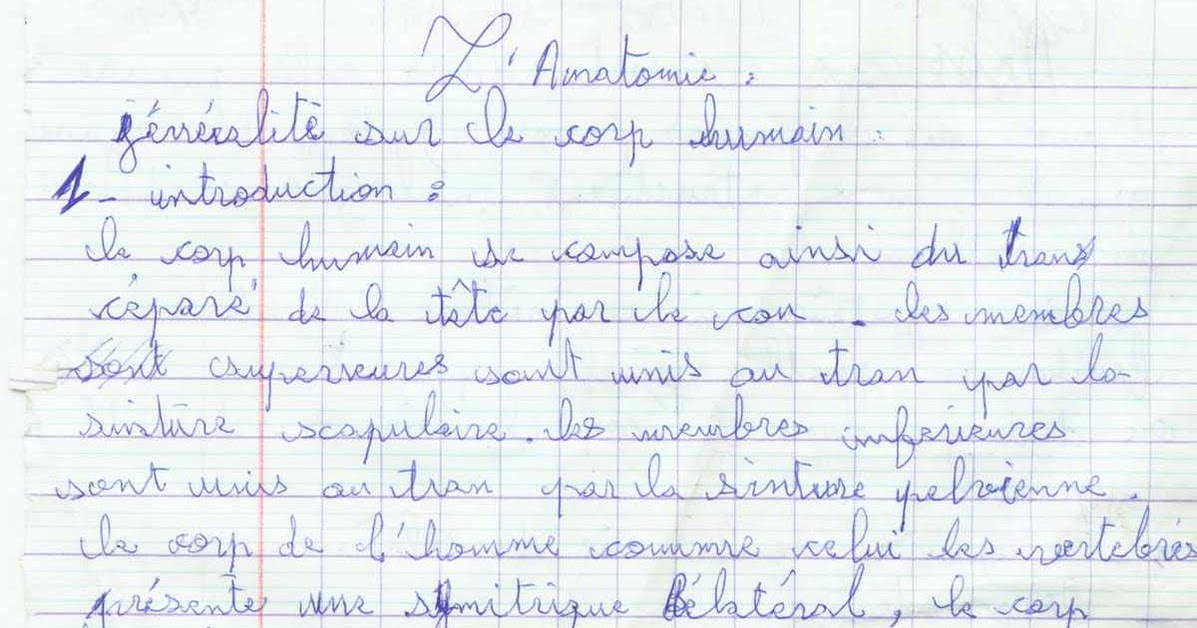 L'Anatomie :
généralité sur le corp humain :
1- introduction :
le corp humain se compose ainsi du tran
céparé de la tête par le cou . les membres
sont superieures sont unis au tran par la
sinture scapulaire . les membres inferieures
sont unis au tran par la sinture pelvienne .
le corp de l'homme comme celui les vertebrés
présente une symitrique bélatéral , le corp